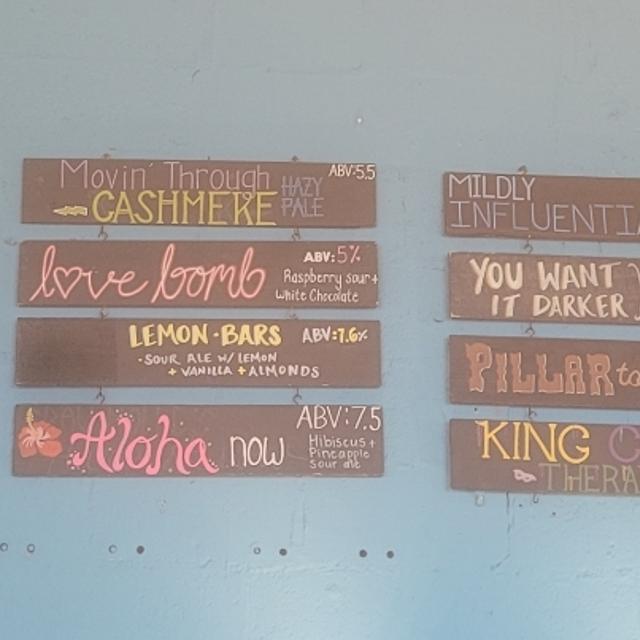 Movin' Through
CASHMERE
HAZY
PALE
ABV:5.5
love bomb
ABV: 5%
Raspberry sour+
White Chocolate
LEMON-BARS
ABV:7.6%
-SOUR ALE W/ LEMON
+ VANILLA + ALMONDS
Aloha now
ABV:7.5
Hibiscus+
Pineapple
Sour ale
MILDLY
INFLUENTIA
YOU WANT
IT DARKER
PILLAR to
KING C
THERA